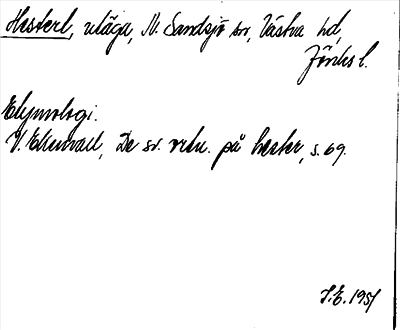 Hesterl, utäga, N. Sandsjö sn, Västra hd,
Jönk. l.
Etymologi.
V. Ekenvall, De sv. ortn. på hester, s. 69.
I.E. 1951